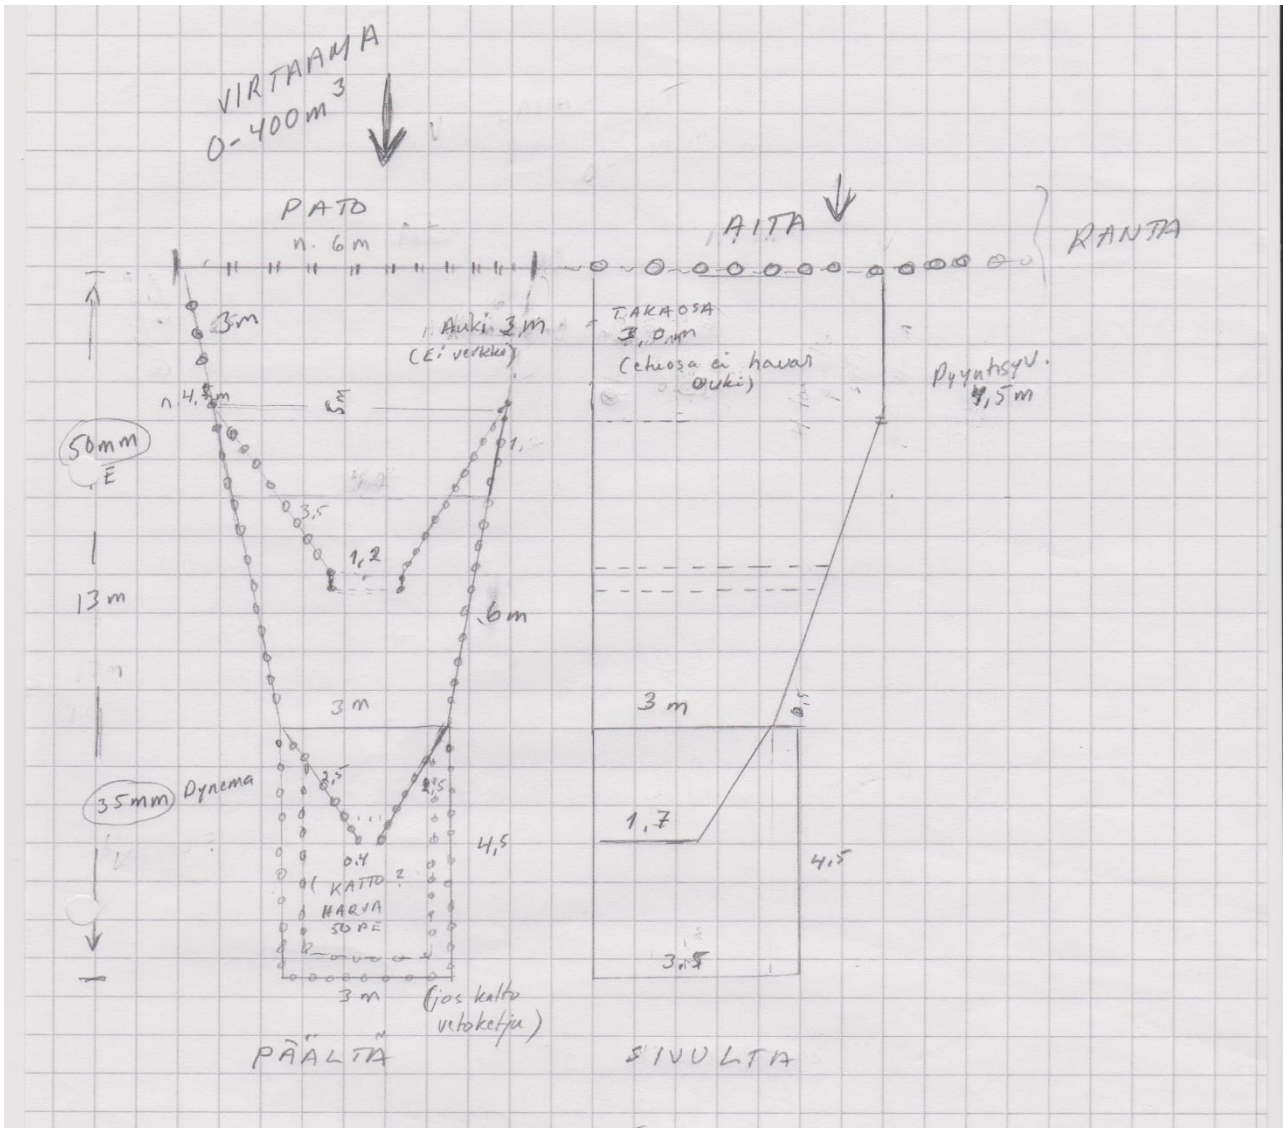 VIRTAAMA
0-400m³
PATO
n. 6 m
AITA
RANTA
3m
Auki 3 m
(Ei verkki)
TAKAOSA
3,0 m
(etuosa ei havas
auki)
Pyyntisyv.
4,5 m
5m
50mm
1,
3,5
1,2
13 m
.6m
3 m
3 m
0,5
35mm Dynema
2,5
2,5
1,7
4,5
4,5
0,4
( KATTO ?
HARVA
50 PE
3,5
3 m
(jos katto
vetoketju)
PÄÄLTÄ
SIVULTA